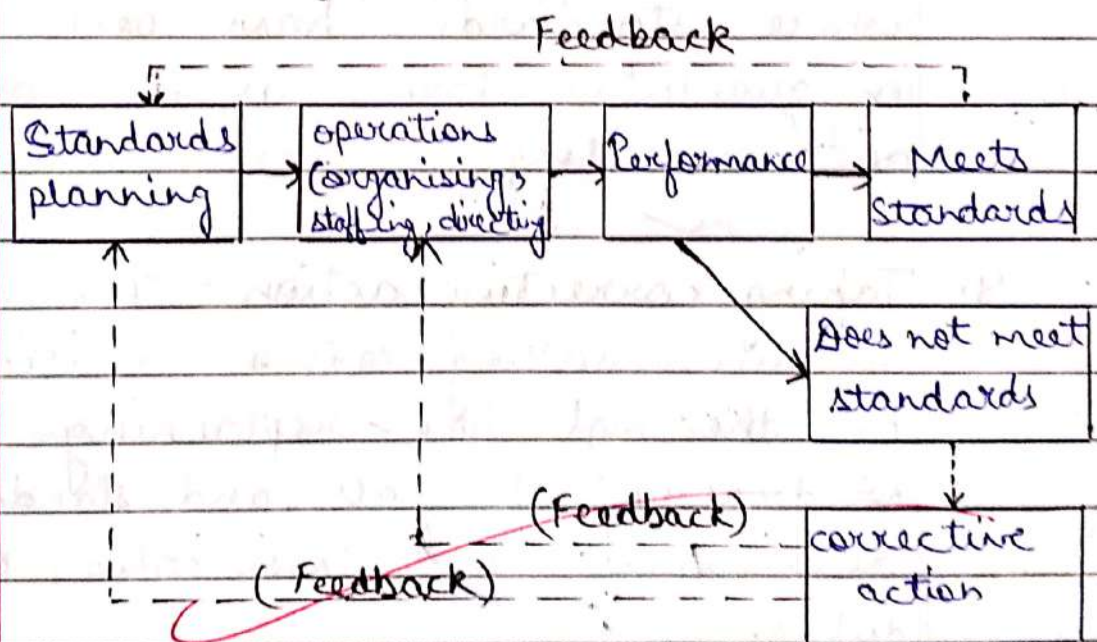 Feedback
Standards
planning
operations
(organising,
staffing, directing
Performance
Meets
standards
Does not meet
standards
(Feedback)
(Feedback)
corrective
action